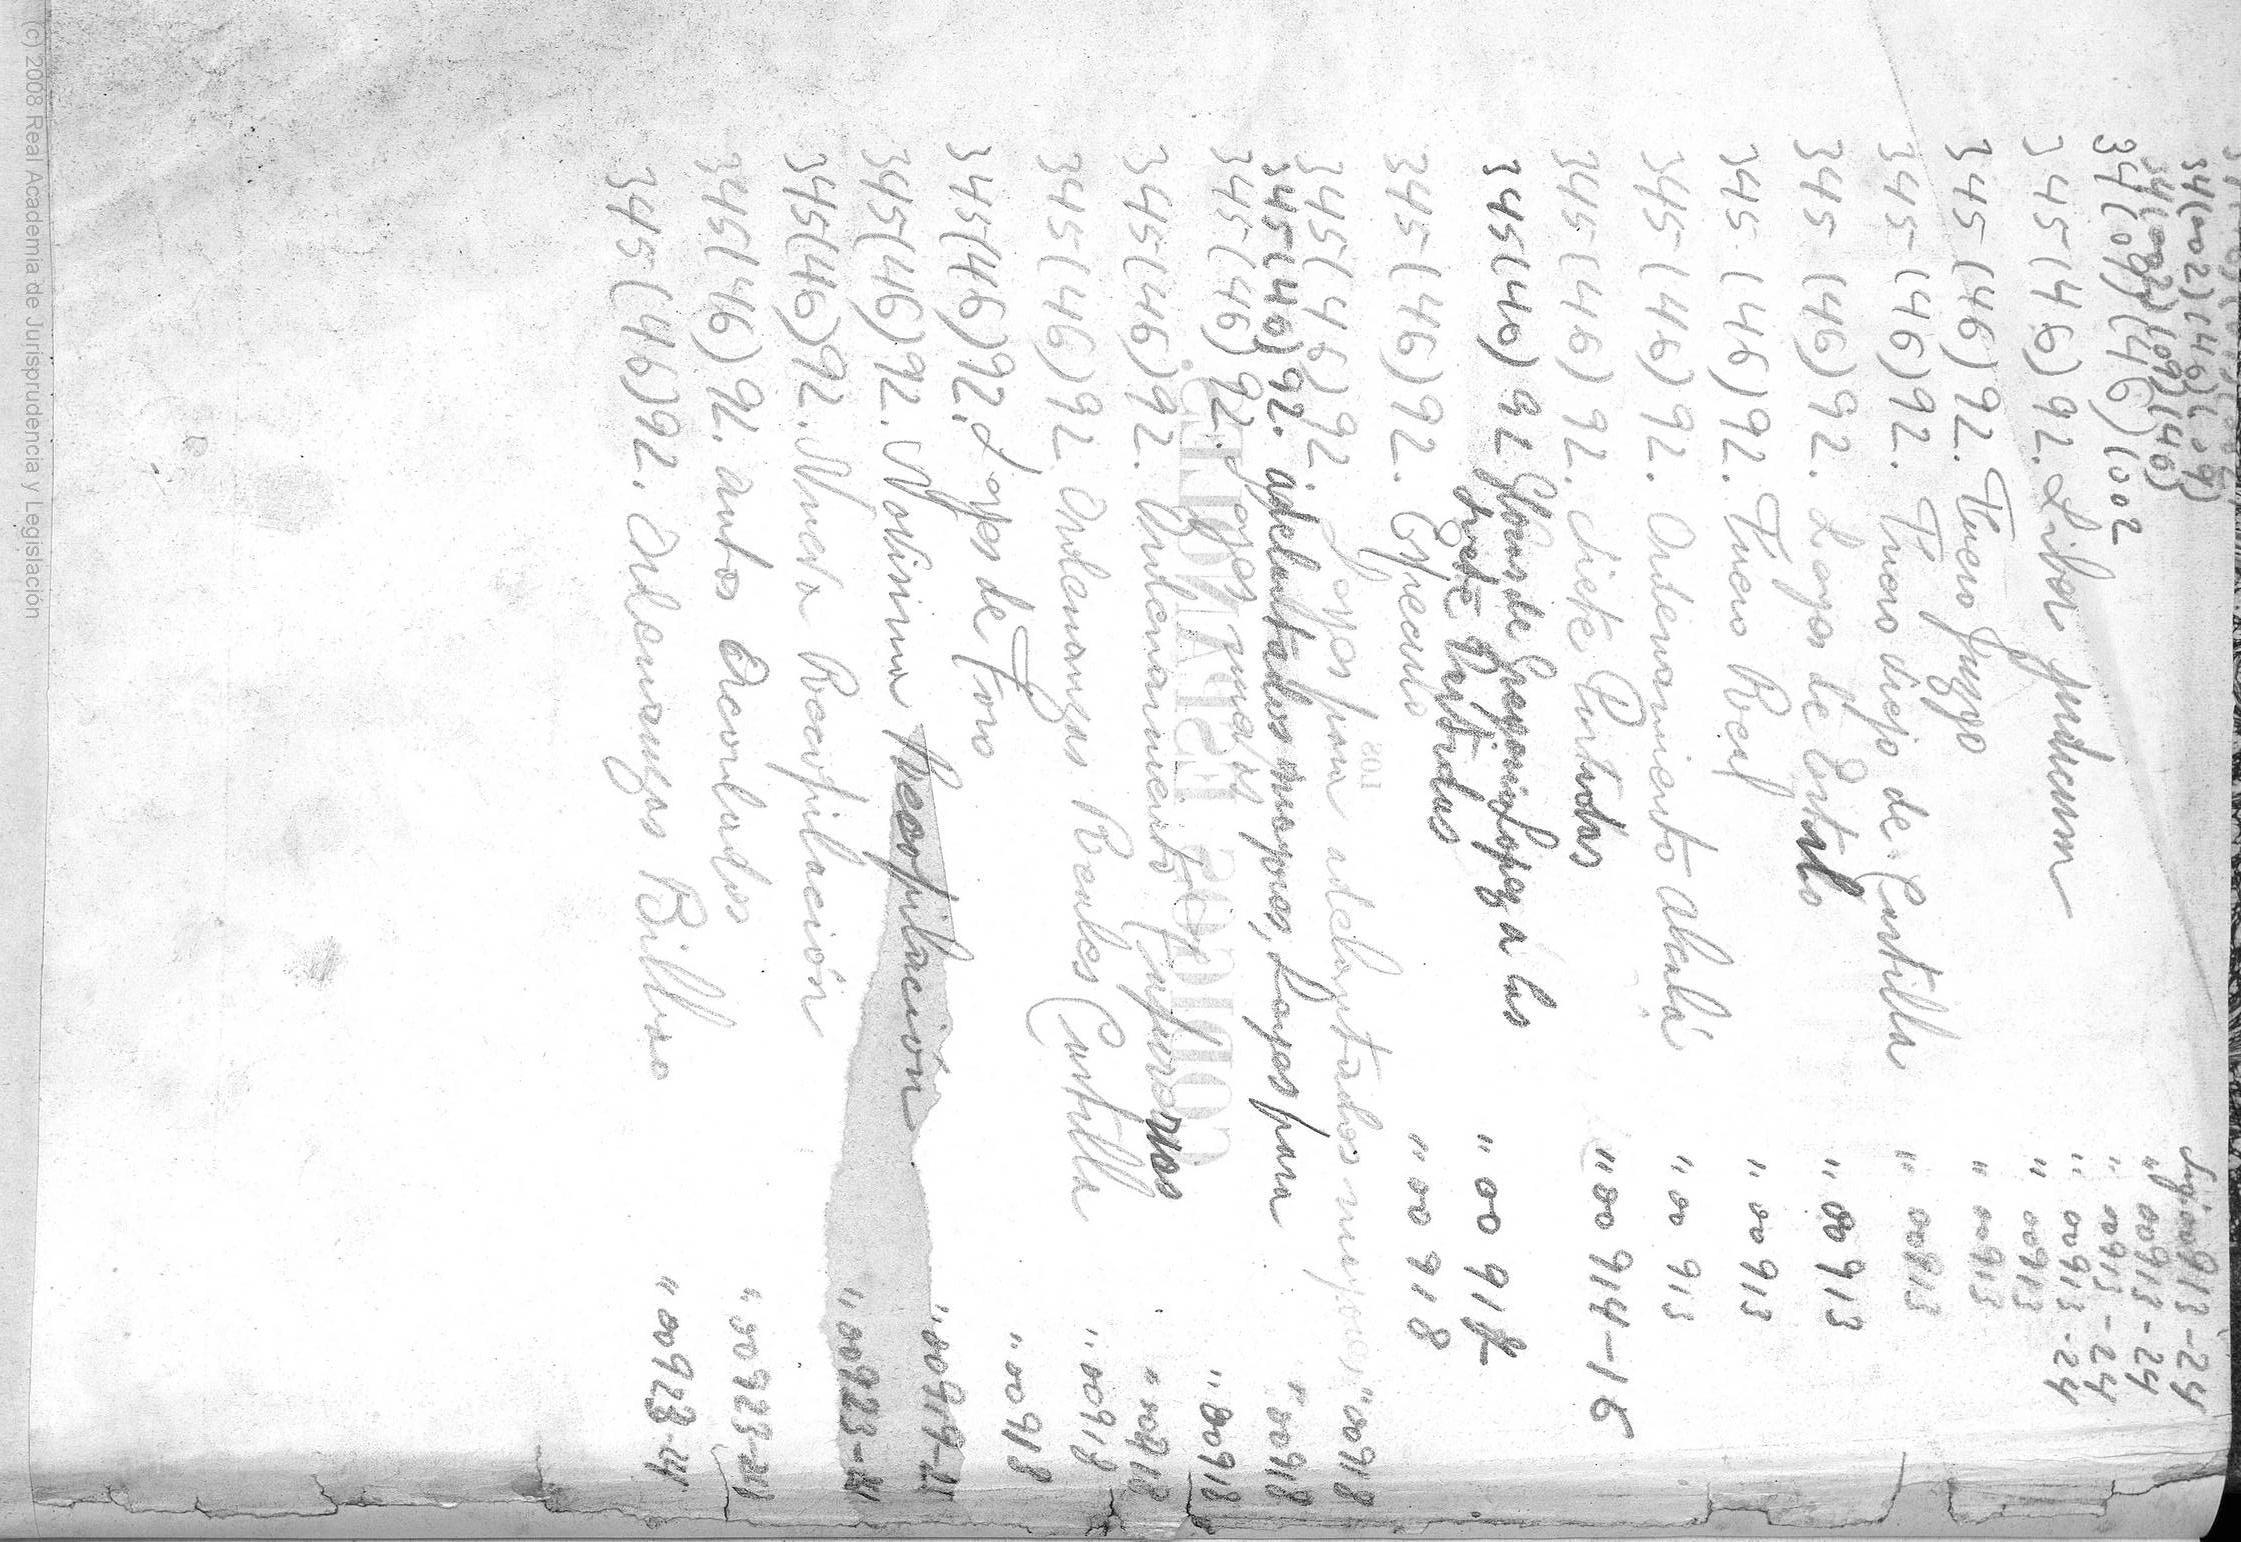 34(002)(46)(09)
34(002)(09)(46)
34(09)(46)(002
345(46)92. Liber judicum
345(46)92. Fuero Juzgo
345(46)92. Fuero viejo de Castilla
345(46)92. Leyes de Estilo
345(46)92. Fuero Real
345(46)92. Ordenamiento Alcalá
345(46)92. Siete Partidas
345(46)92 Glosas de Gregorio Lopez a las
Siete Partidas
345(46)92. Espéculo
345(46)92 Leyes para adelantados mayores
345(46)92. adelantados mayores, Leyes para
345(46)92. Leyes
345(46)92. Ordenamiento
345(46)92 Ordenanzas Reales Castilla
345(46)92. Leyes de Toro
345(46)92. Novísima Recopilación
345(46)92. Nueva Recopilación
345(46)92. autos acordados
345(46)92. Ordenanzas Bilbao
Sig 00913-24
" 00913-24
" 00913-24
" 00913-24
" 00913
" 00913
" 00913
" 00913
" 00913
" 00913
" 00914-16
" 00917
" 00918
" 00918
" 00918
" 00918
" 00918
" 00918
" 00918
" 00919-24
" 00923-24
" 00923-24
" 00923-24
CODIGOS ESPAÑOLES
(c) 2008 Real Academia de Jurisprudencia y Legislación